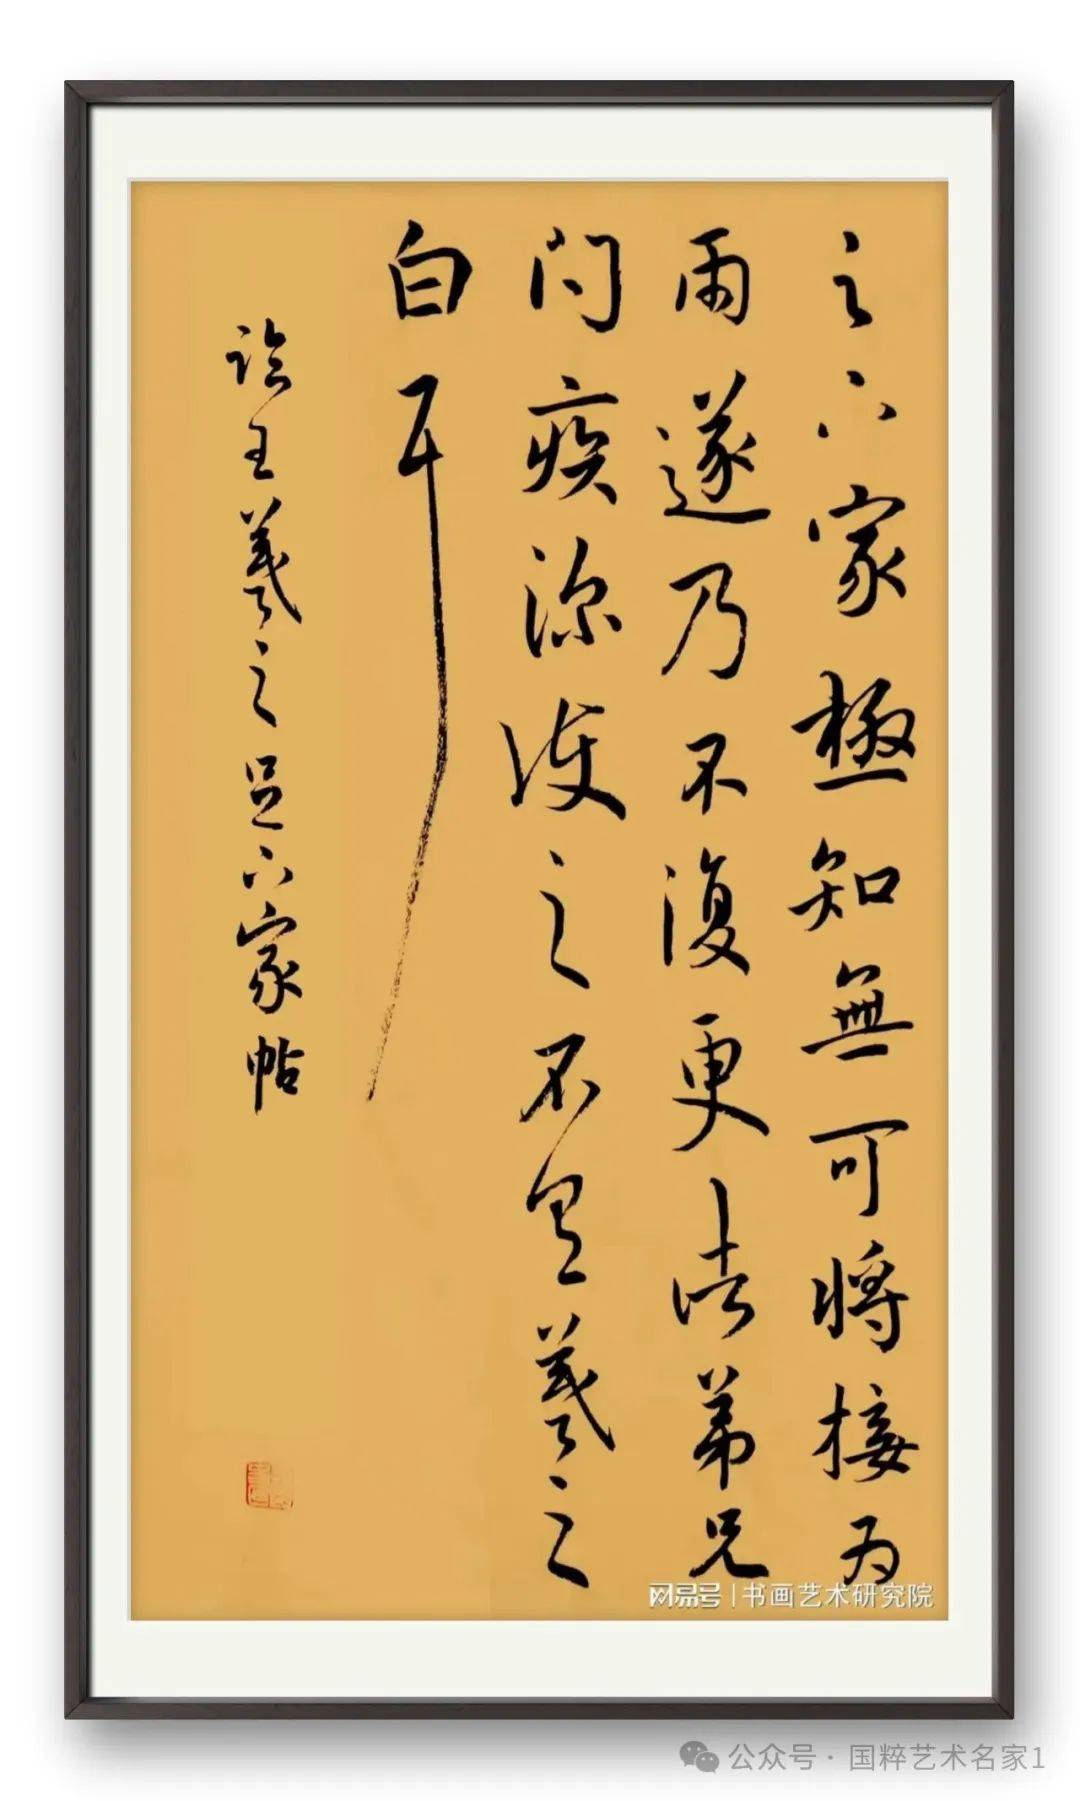 之六家極知無可將接为
雨遂乃不復更诸弟兄
问疾深護之不具羲之
白耳
临王羲之足下家帖
网易号 | 书画艺术研究院
公众号 · 国粹艺术名家1